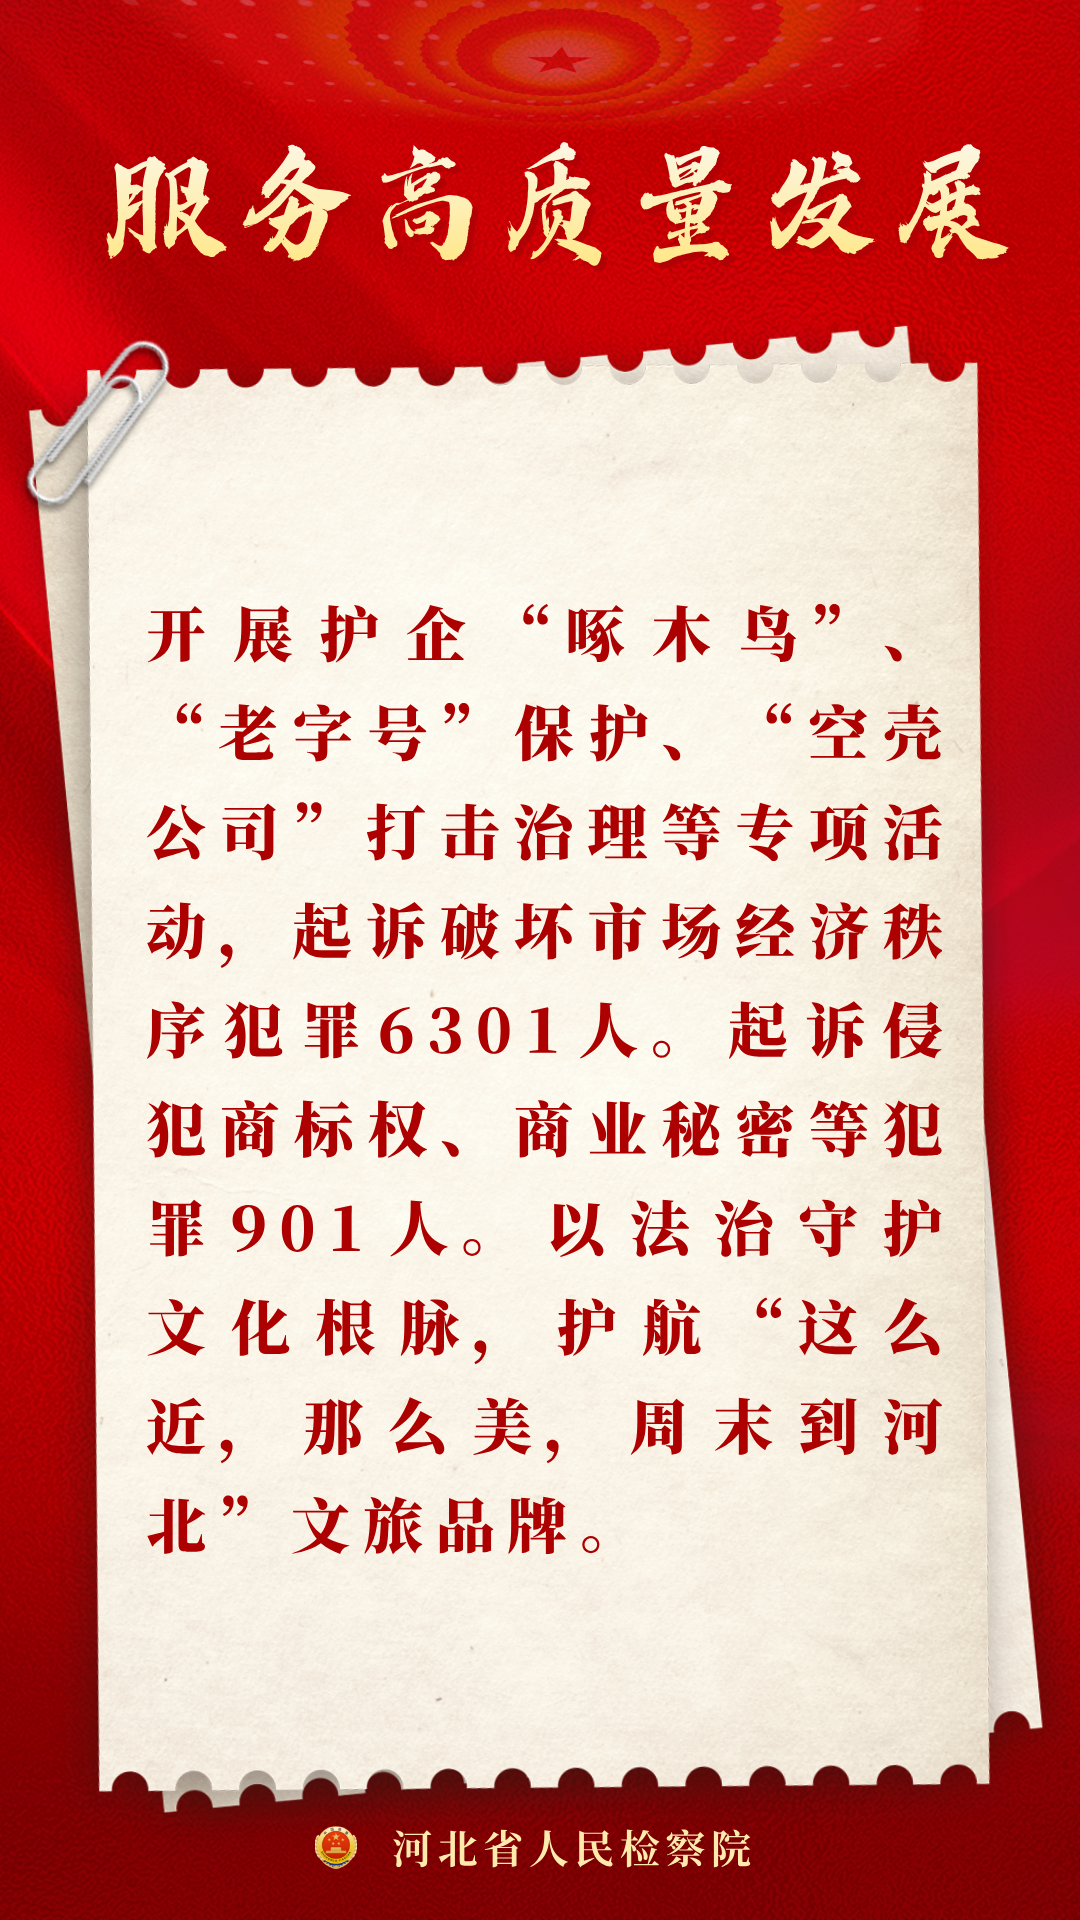 服务高质量发展
开展护企“啄木鸟”、
“老字号”保护、“空壳
公司”打击治理等专项活
动，起诉破坏市场经济秩
序犯罪6301人。起诉侵
犯商标权、商业秘密等犯
罪901人。以法治守护
文化根脉，护航“这么
近，那么美，周末到河
北”文旅品牌。
河北省人民检察院